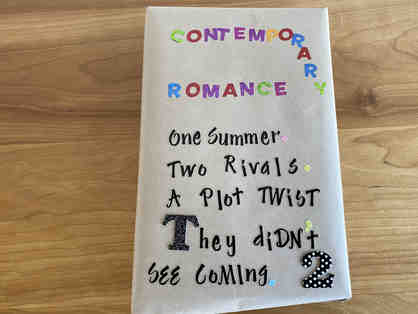 CONTEMPORARY
ROMANCE
One Summer.
Two Rivals.
A Plot TWiST
They diDN't
SEE CoMIng.
2